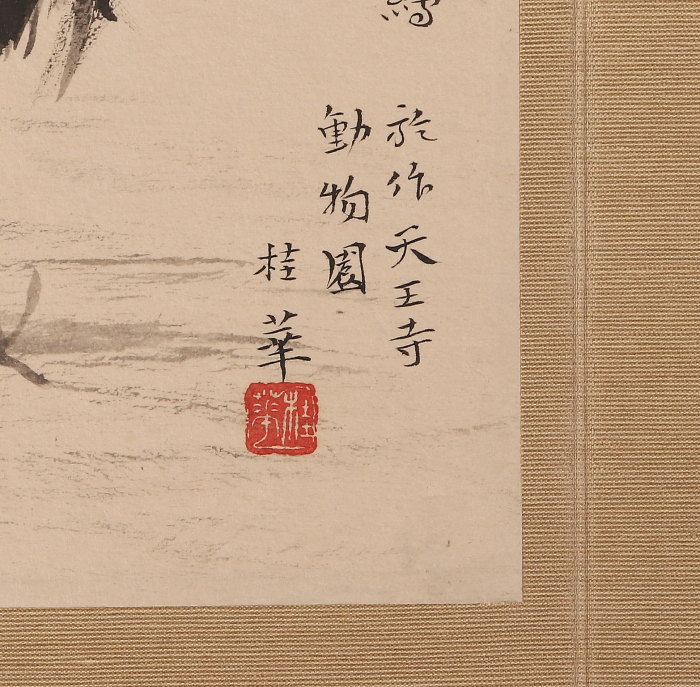 於作天王寺
動物園
桂華
桂華